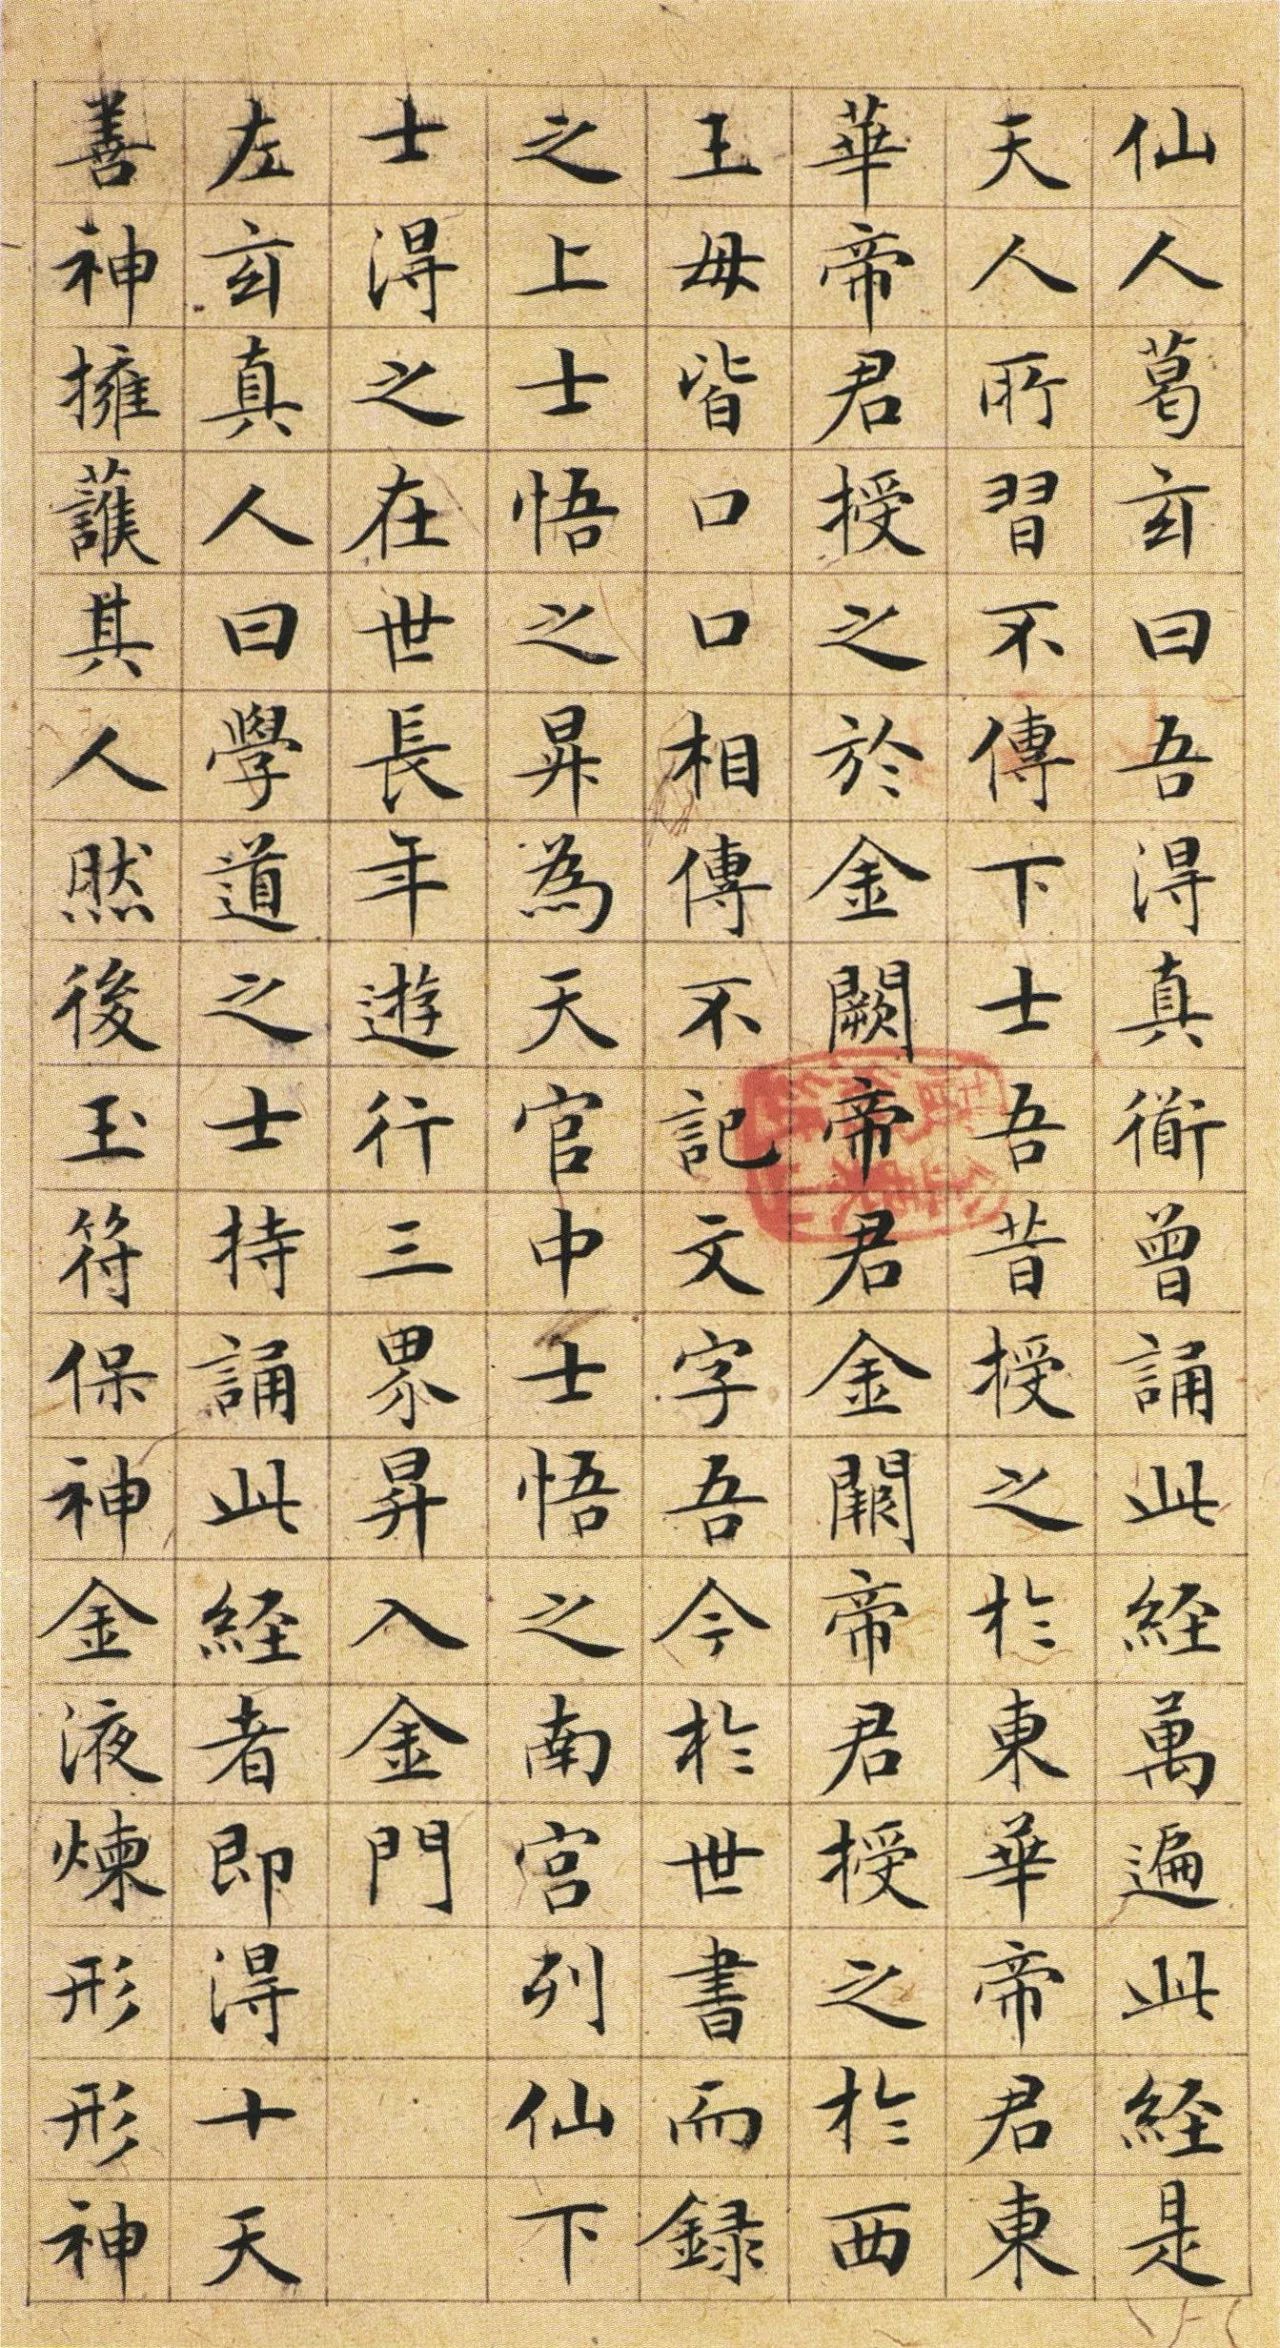 仙人葛玄曰吾得真衜曾誦此経萬遍此経是
天人所習不傳下士吾昔授之於東華帝君東
華帝君授之於金闕帝君金闕帝君授之於西
王母皆口口相傳不記文字吾今於世書而録
之上士悟之昇為天官中士悟之南宫列仙下
士得之在世長年遊行三界昇入金門
左玄真人曰學道之士持誦此経者即得十天
善神擁護其人然後玉符保神金液煉形形神